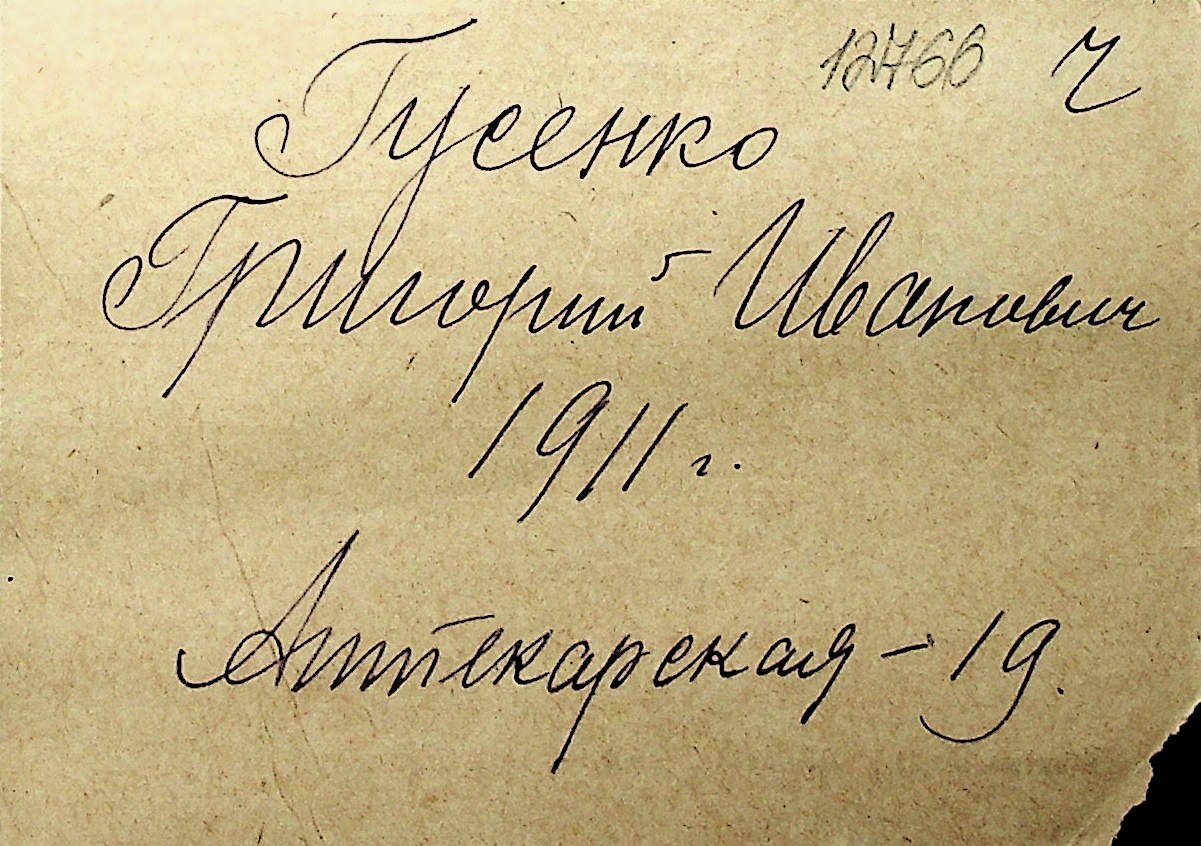 12766 Ч
Гусенко
Григорий Иванович
1911 г.
Аптекарская - 19.